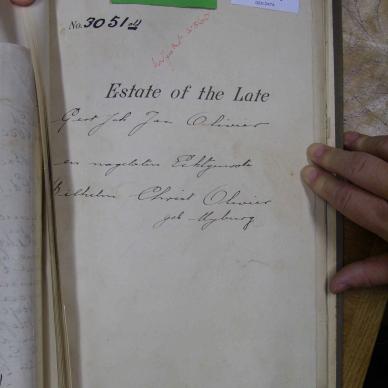 No. 3051 old
Estate of the Late
Gert Joh Jan Olivier
en nagelaten Echtgenoote
Wilhelm Christ Olivier
geb Myburg